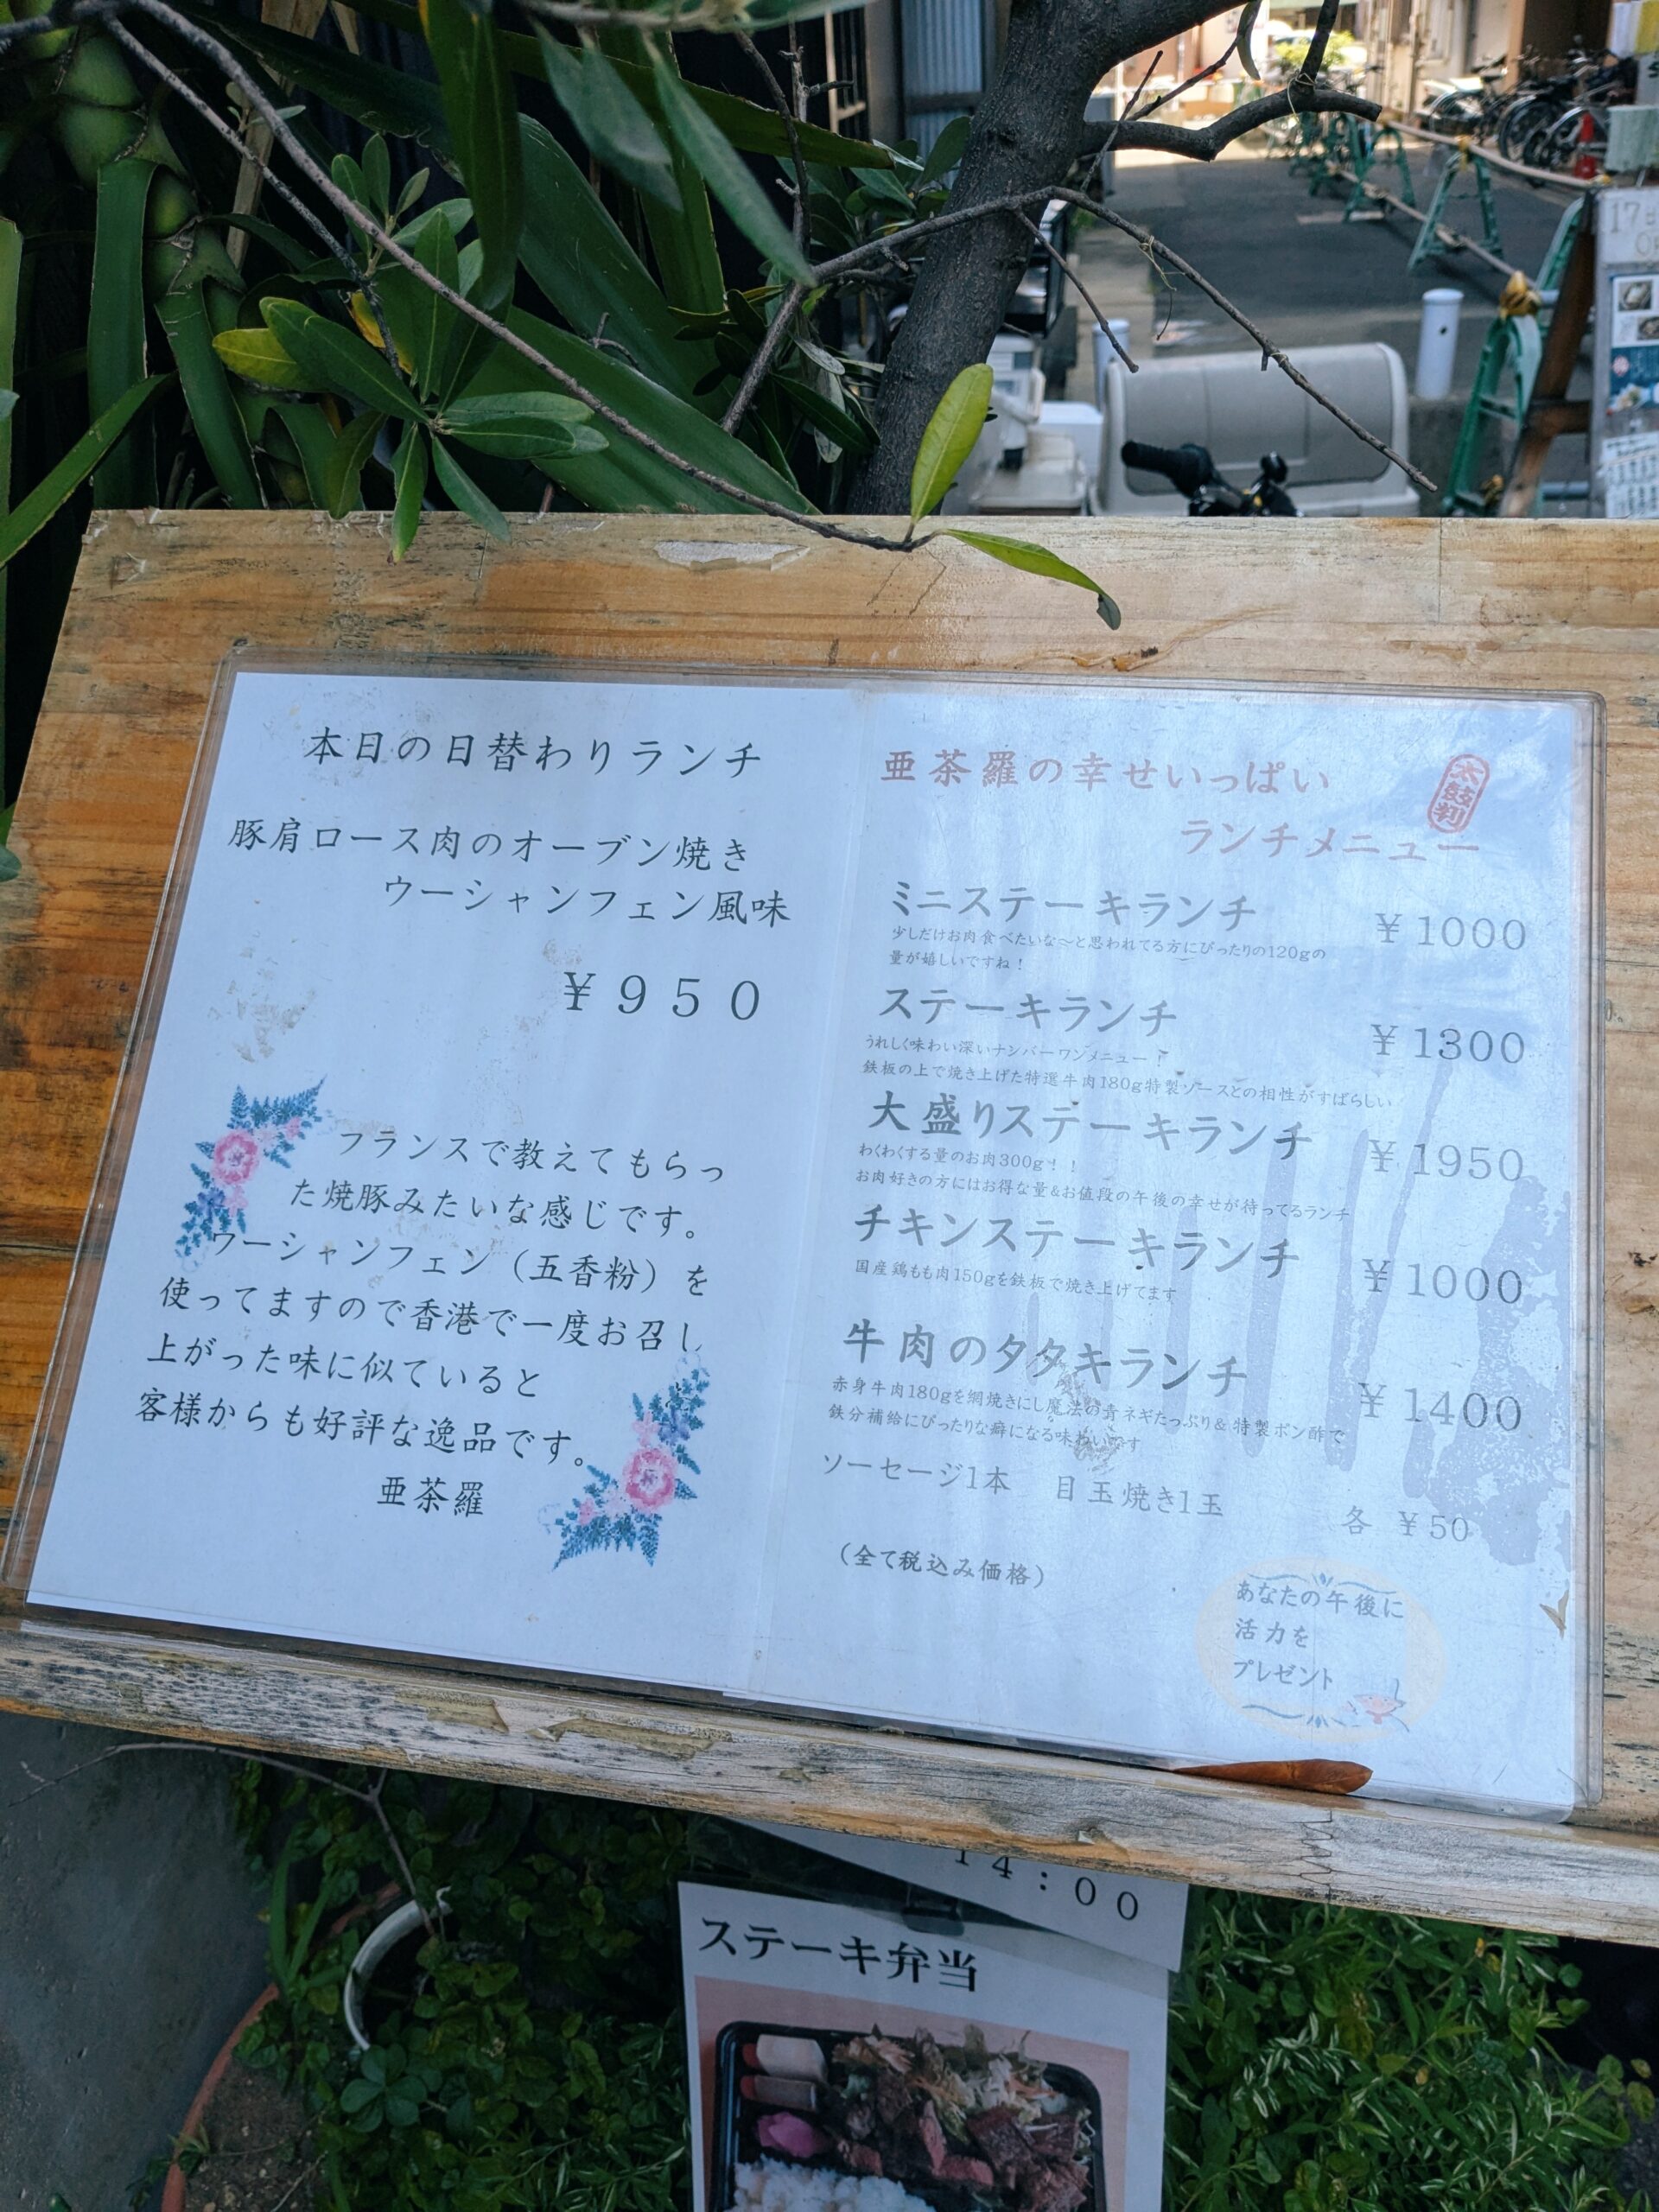 本日の日替わりランチ
豚肩ロース肉のオーブン焼き
ウーシャンフェン風味
￥９５０
フランスで教えてもらっ
た焼豚みたいな感じです。
ウーシャンフェン（五香粉）を
使ってますので香港で一度お召し
上がった味に似ていると
客様からも好評な逸品です。
亜茶羅
亜茶羅の幸せいっぱい
太鼓判
ランチメニュー
ミニステーキランチ ￥1000
少しだけお肉食べたいな～と思われてる方にぴったりの120gの
量が嬉しいですね！
ステーキランチ ￥1300
うれしく味わい深いナンバーワンメニュー！
鉄板の上で焼き上げた特選牛肉180g特製ソースとの相性がすばらしい
大盛りステーキランチ ￥1950
わくわくする量のお肉300g！！
お肉好きの方にはお得な量&お値段の午後の幸せが待ってるランチ
チキンステーキランチ ￥1000
国産鶏もも肉150gを鉄板で焼き上げてます
牛肉のタタキランチ ￥1400
赤身牛肉180gを網焼きにし魔法の青ネギたっぷり&特製ポン酢で
鉄分補給にぴったりな癖になる味わいです
ソーセージ1本 目玉焼き1玉
各 ￥50
（全て税込み価格）
あなたの午後に
活力を
プレゼント
14：00
ステーキ弁当